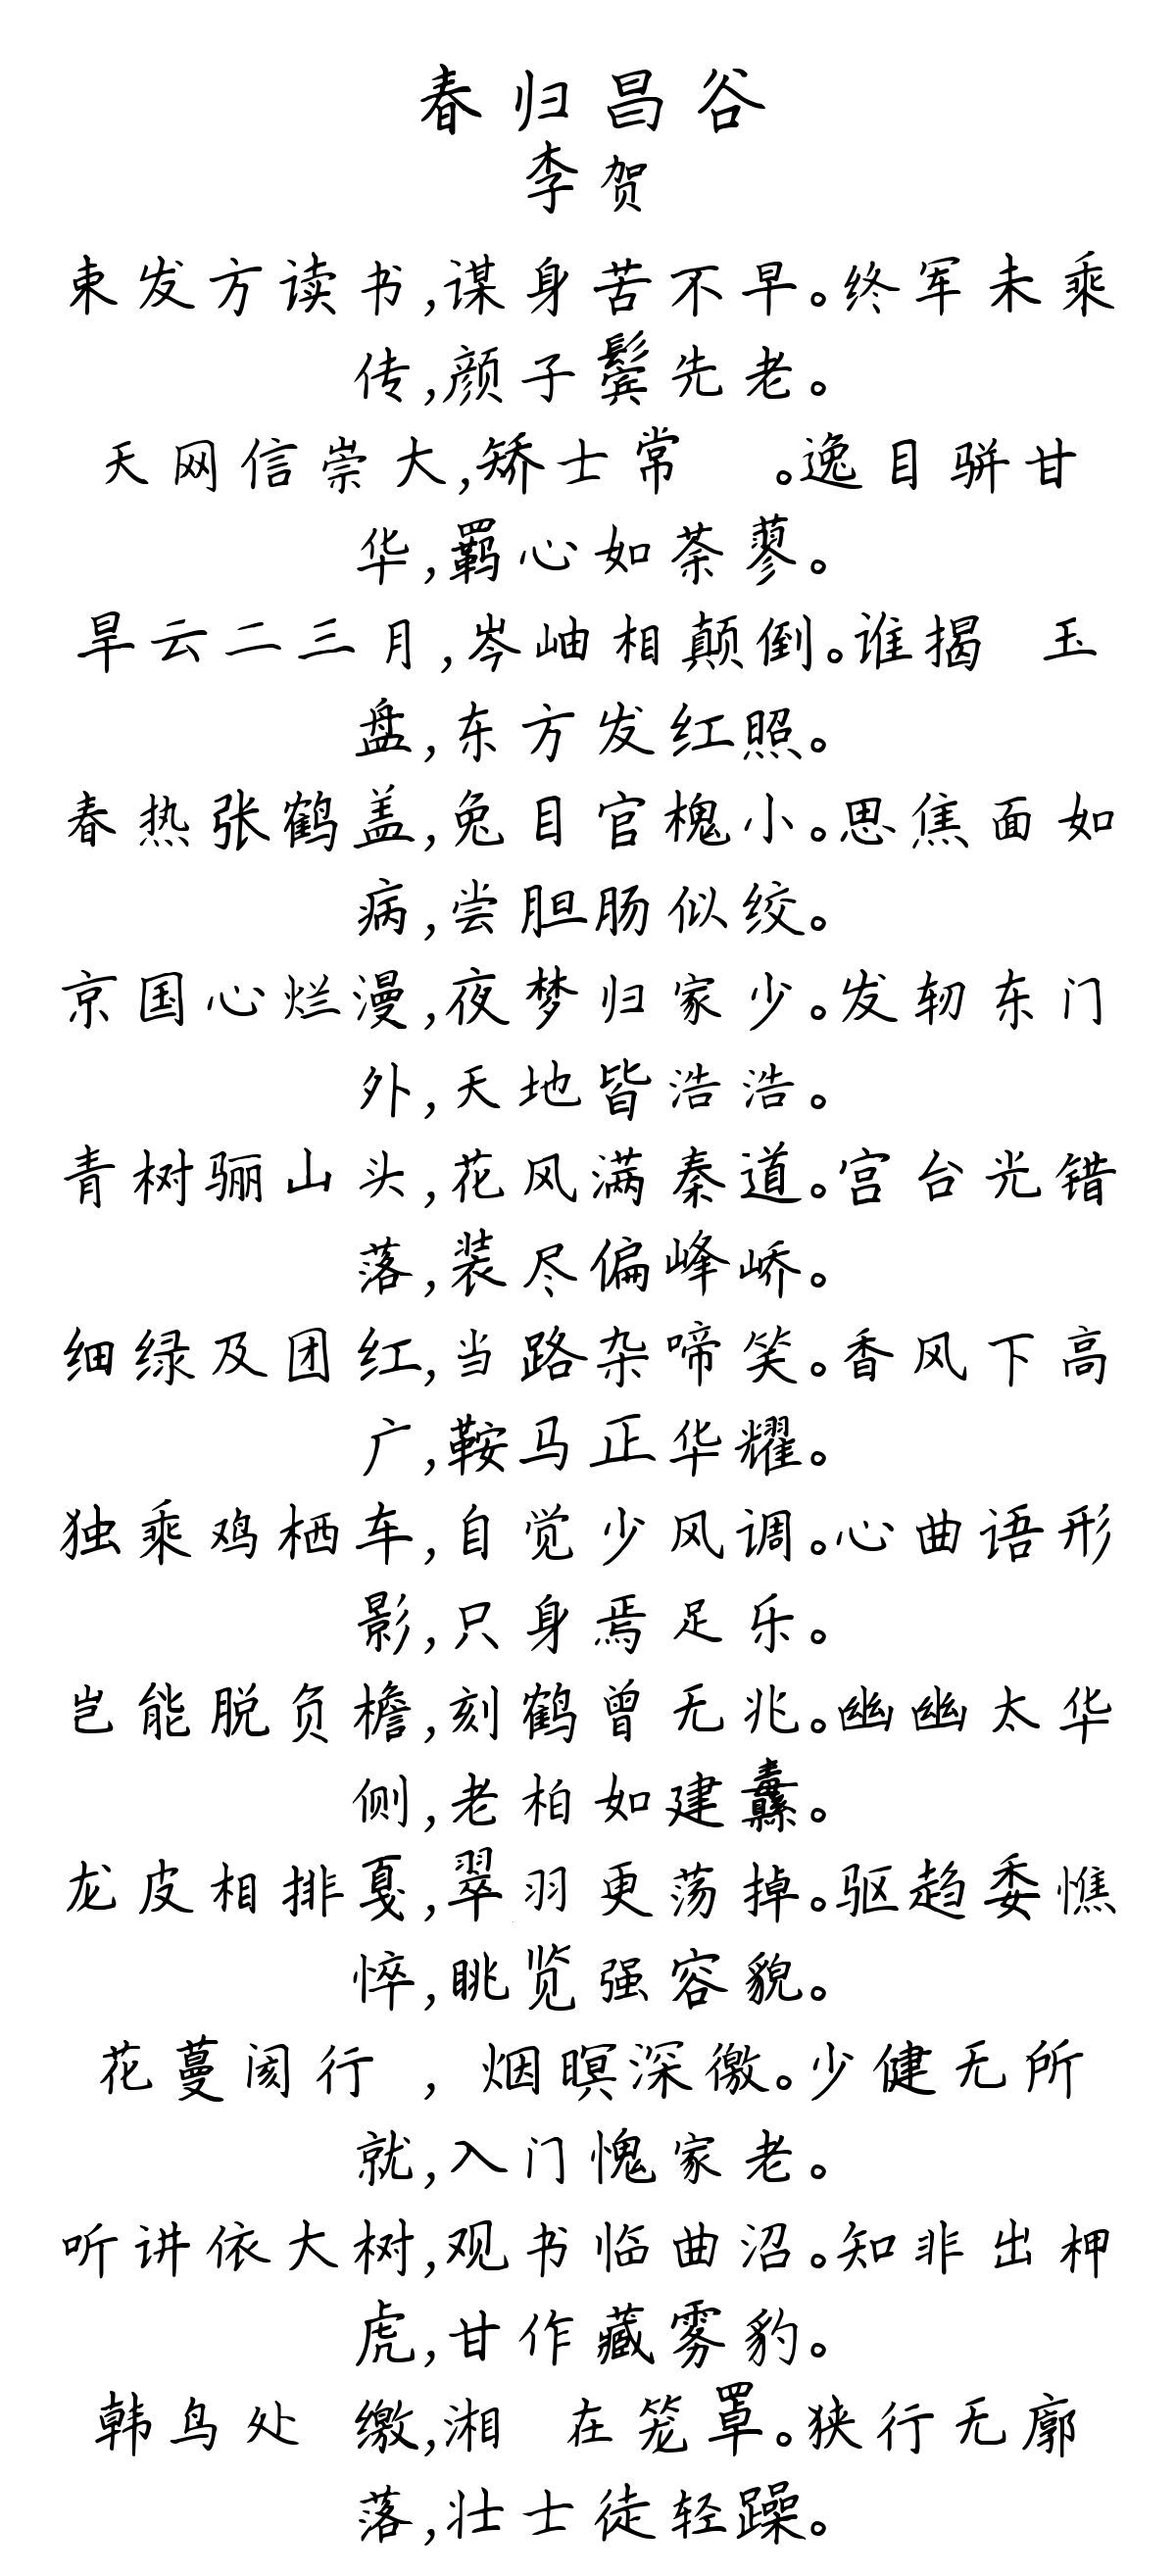 春归昌谷
李贺
束发方读书,谋身苦不早。终军未乘
传,颜子鬓先老。
天网信崇大,矫士常 。逸目骈甘
华,羁心如荼蓼。
旱云二三月,岑岫相颠倒。谁揭 玉
盘,东方发红照。
春热张鹤盖,兔目官槐小。思焦面如
病,尝胆肠似绞。
京国心烂漫,夜梦归家少。发轫东门
外,天地皆浩浩。
青树骊山头,花风满秦道。宫台光错
落,装尽偏峰峤。
细绿及团红,当路杂啼笑。香风下高
广,鞍马正华耀。
独乘鸡栖车,自觉少风调。心曲语形
影,只身焉足乐。
岂能脱负檐,刻鹤曾无兆。幽幽太华
侧,老柏如建纛。
龙皮相排戛,翠羽更荡掉。驱趋委憔
悴,眺览强容貌。
花蔓阂行 ,烟暝深徼。少健无所
就,入门愧家老。
听讲依大树,观书临曲沼。知非出柙
虎,甘作藏雾豹。
韩鸟处 缴,湘 在笼罩。狭行无廓
落,壮士徒轻躁。